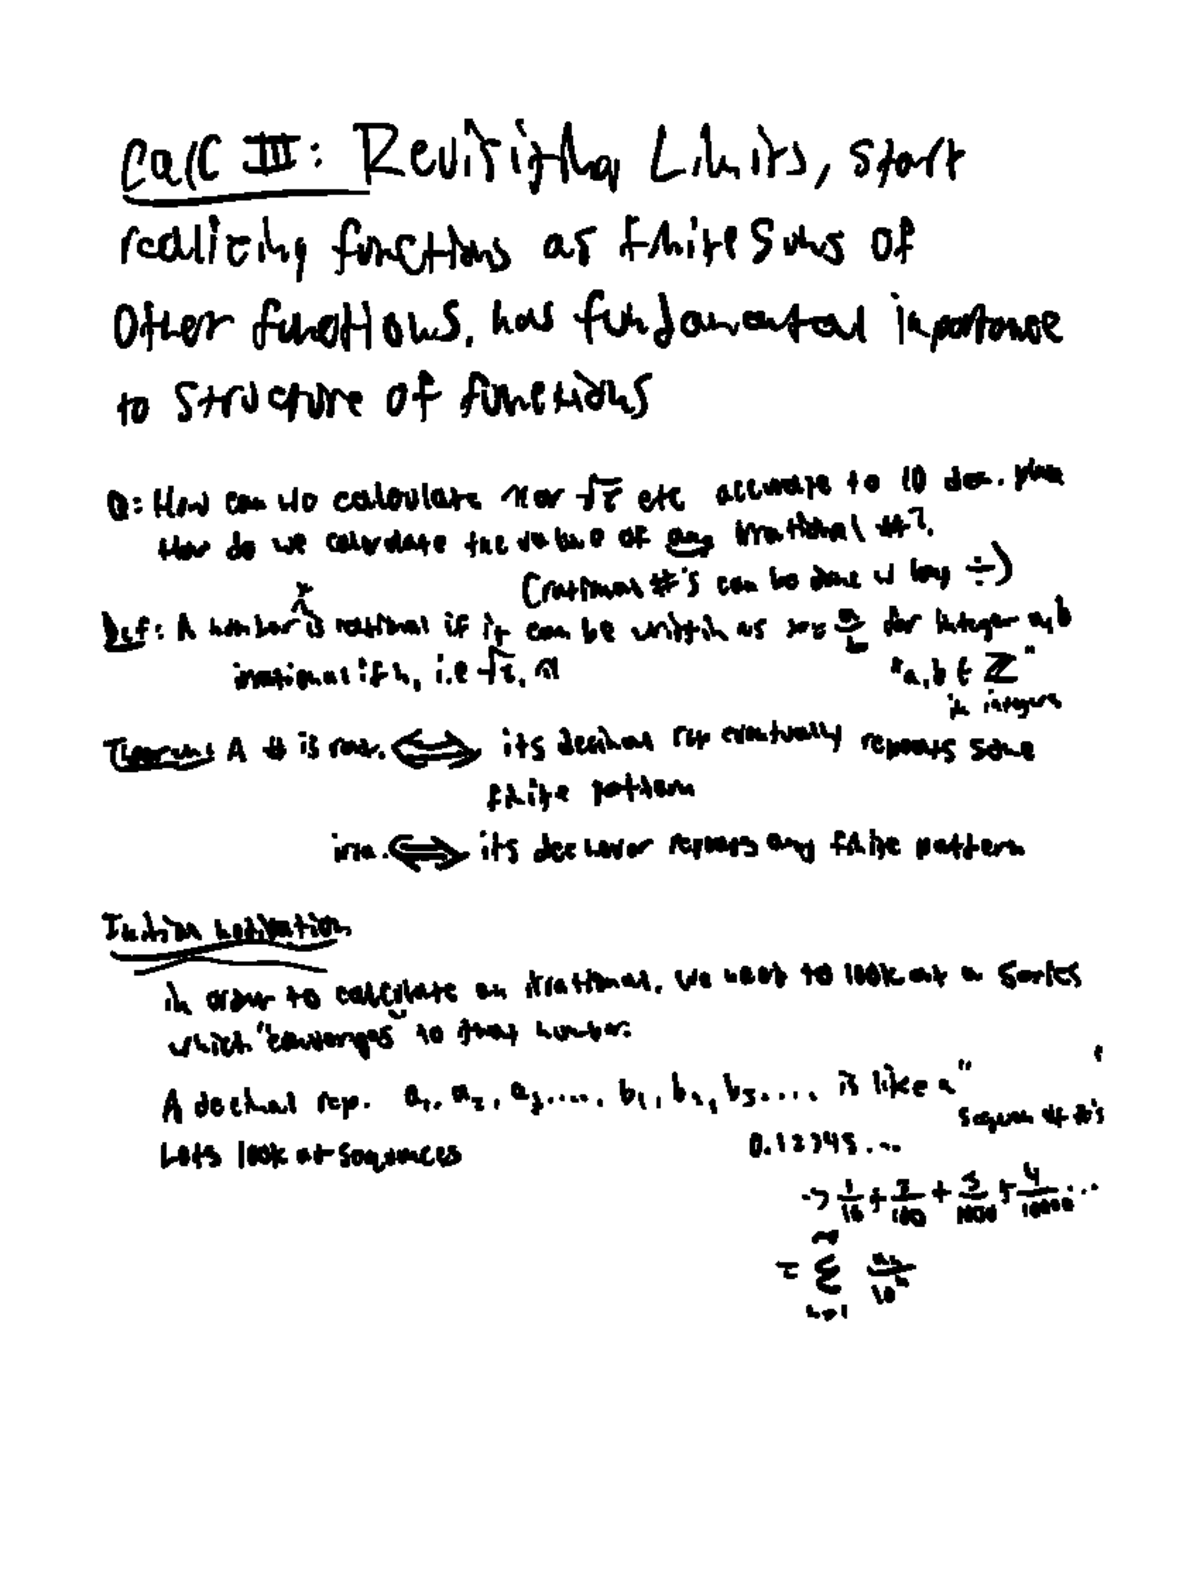 Calc III: Revisiting Limits, start
realizing functions as finite sums of
other functions, has fundamental importance
to structure of functions
Q: How can we calculate π or √2 etc accurate to 10 dec. place
How do we calculate the value of any irrational #?
(rational #'s can be done w long ÷)
x
Def: A number is rational if it can be written as x = a/b for integer a,b
irrational if not, i.e √2, π
"a,b ∈ ℤ"
in integers
Theorem: A # is rat. ⟺ its decimal rep eventually repeats some
finite pattern
irra. ⟺ its dec never repeats any finite pattern
Initial motivation
in order to calculate an irrational, we need to look at a series
which "converges" to that number.
A decimal rep. a₁, a₂, a₃...., b₁, b₂, b₃.... is like a "
sequence of #'s
Lets look at sequences
0.12345...
-> 1/10 + 2/100 + 3/1000 + 4/10000 ...
= ∑ n=1 ∞ aₙ/10ⁿ